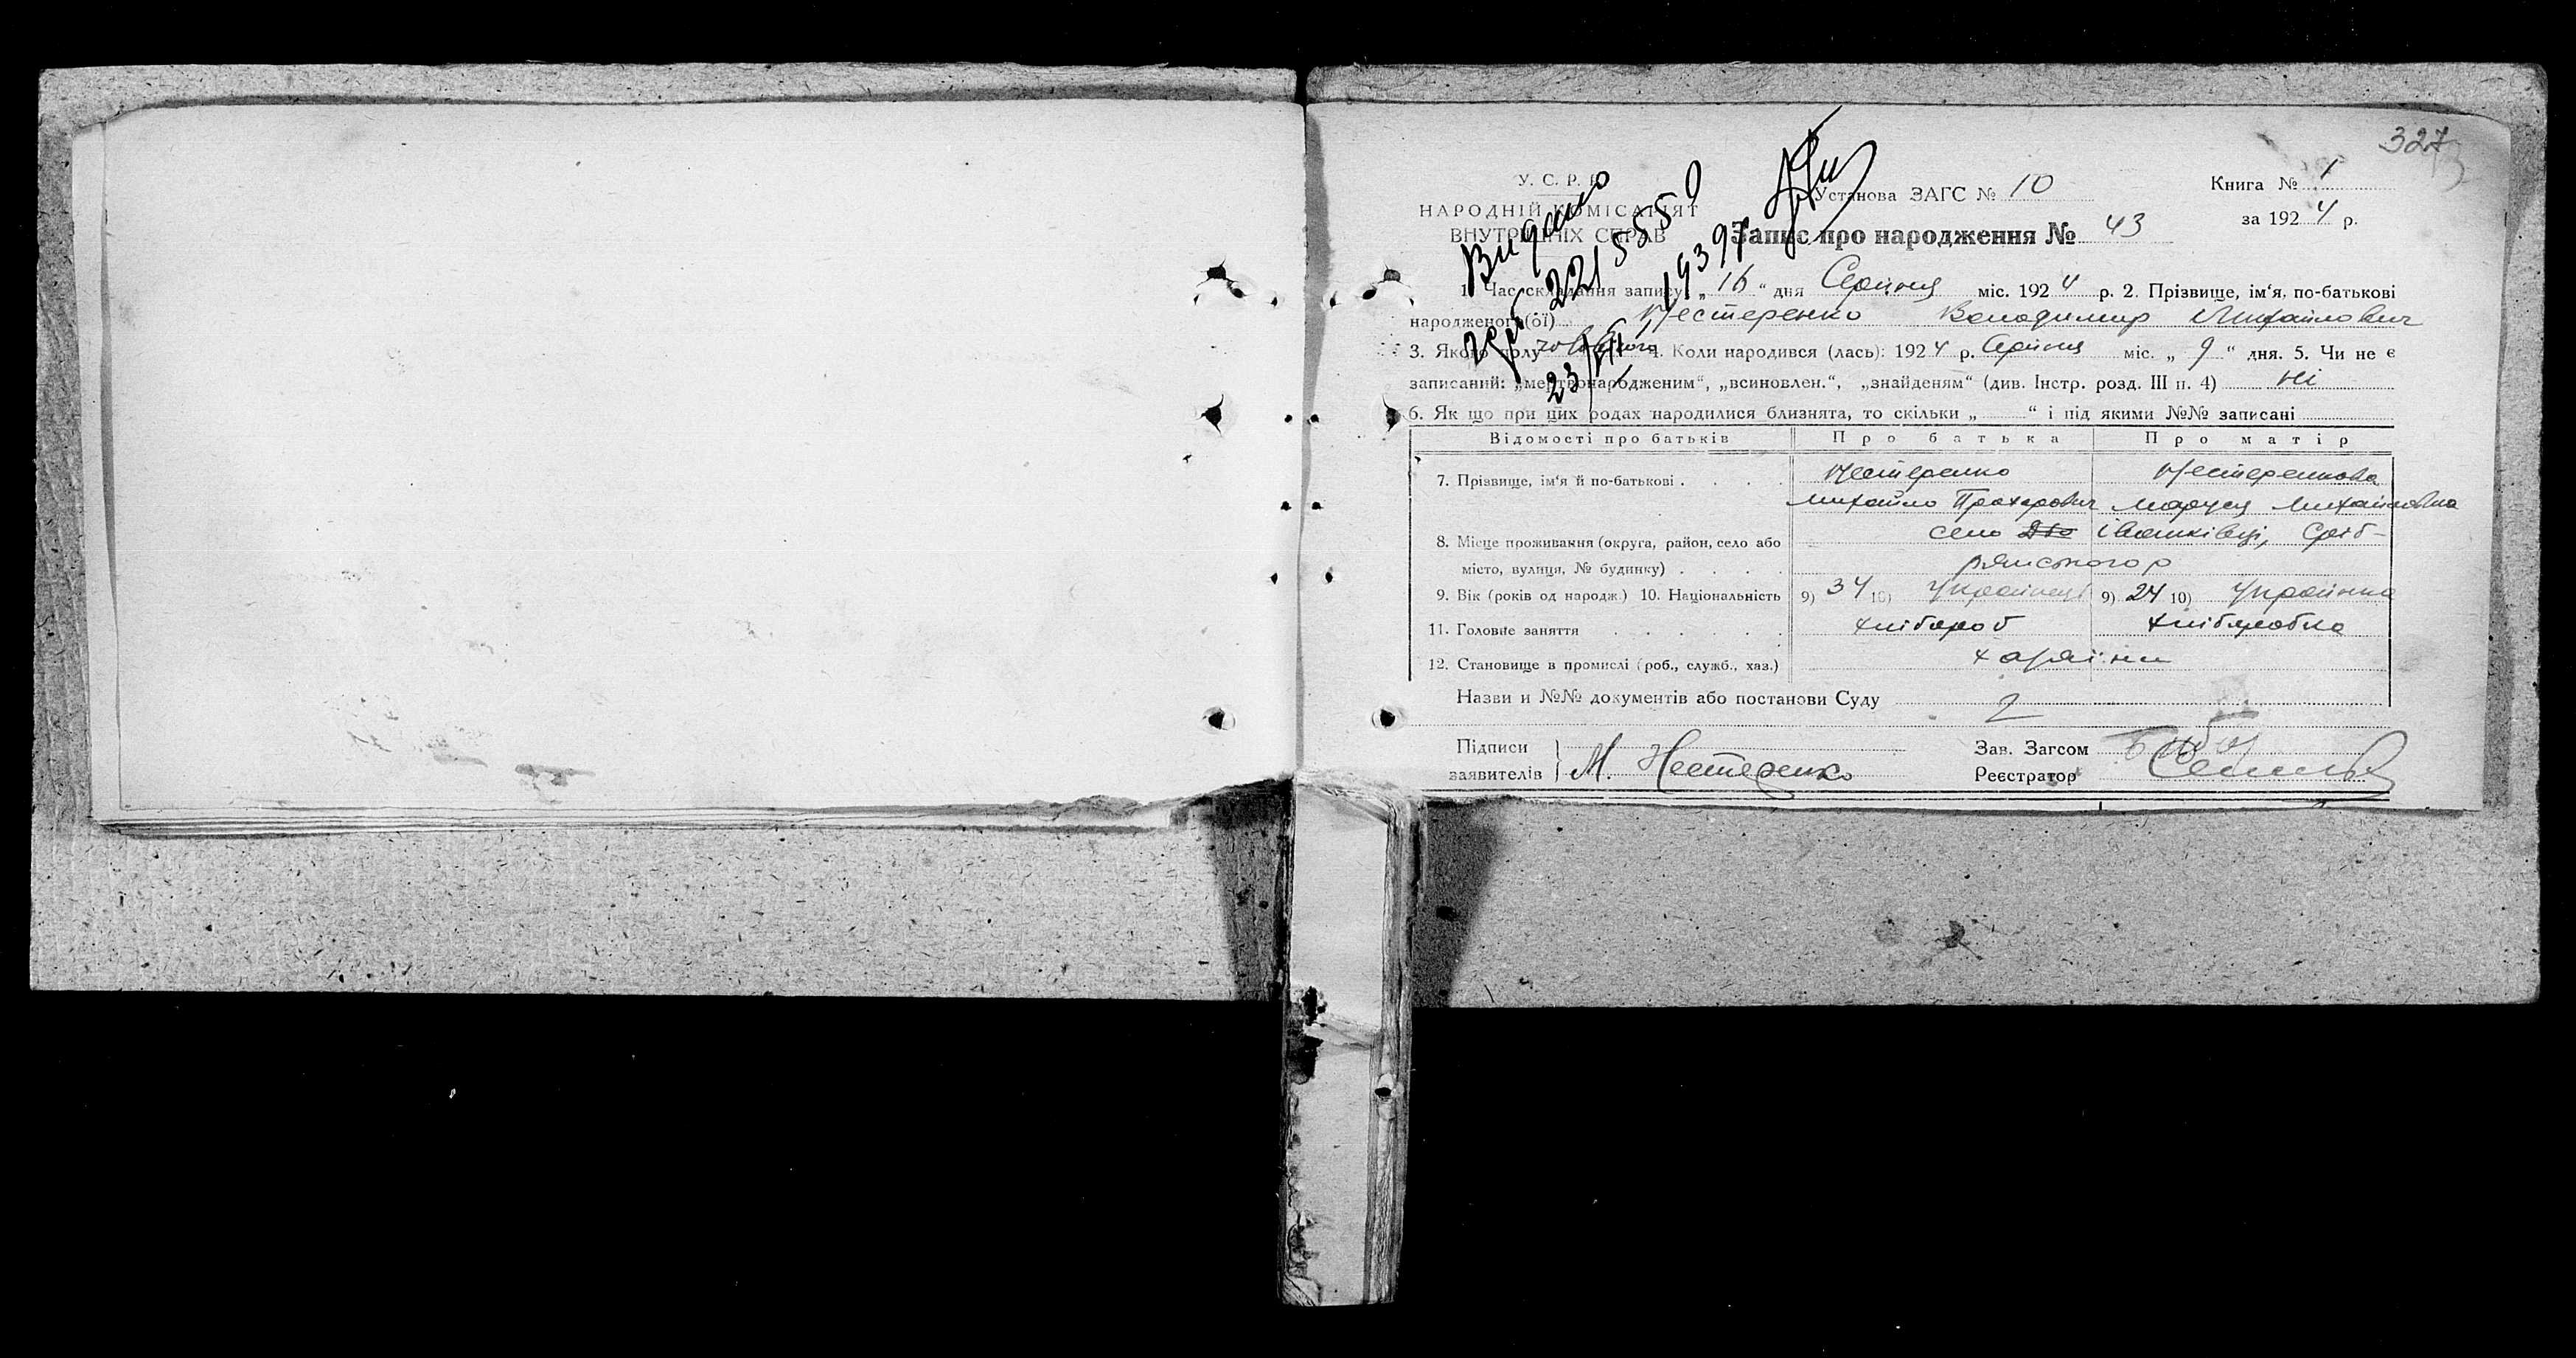 327
У. С. Р. Р.
НАРОДНІЙ КОМІСАРІЯТ
ВНУТРІШНІХ СПРАВ
Установа ЗАГС № 10
Книга № 1
за 1924 р.
Запис про народження № 43
Видано
221555
23/VII
1. Час складання запису: „16“ дня Серпня міс. 1924 р. 2. Прізвище, ім‘я, по-батькові
народженого(ої) Нестеренко Володимир Михайлович
3. Якого полу чоловічого 4. Коли народився (лась): 1924 р. Серпня міс. „9“ дня. 5. Чи не є
записаний: „мертвонародженим“, „всиновлен.“, „знайденям“ (див. Інстр. розд. III п. 4) ні
6. Як що при цих родах народилися близнята, то скільки „ “ і під якими №№ записані
Відомості про батьків Про батька Про матір
7. Прізвище, ім‘я й по-батькові Нестеренко Нестеренкова
Михайло Прохорович Маруся Михайловна
8. Місце проживання (округа, район, село або село Івашківці, Сріб-
місто, вулиця, № будинку) рянського р
9. Вік (років од народж.) 10. Національність 9) 34 10) Українець 9) 24 10) Українка
11. Головне заняття хлібороб хлібаробка
12. Становище в промислі (роб., служб., хаз.) хазяїни
Назви и №№ документів або постанови Суду
Підписи
заявителів М. Нестеренко
Зав. Загсом
Реєстратор